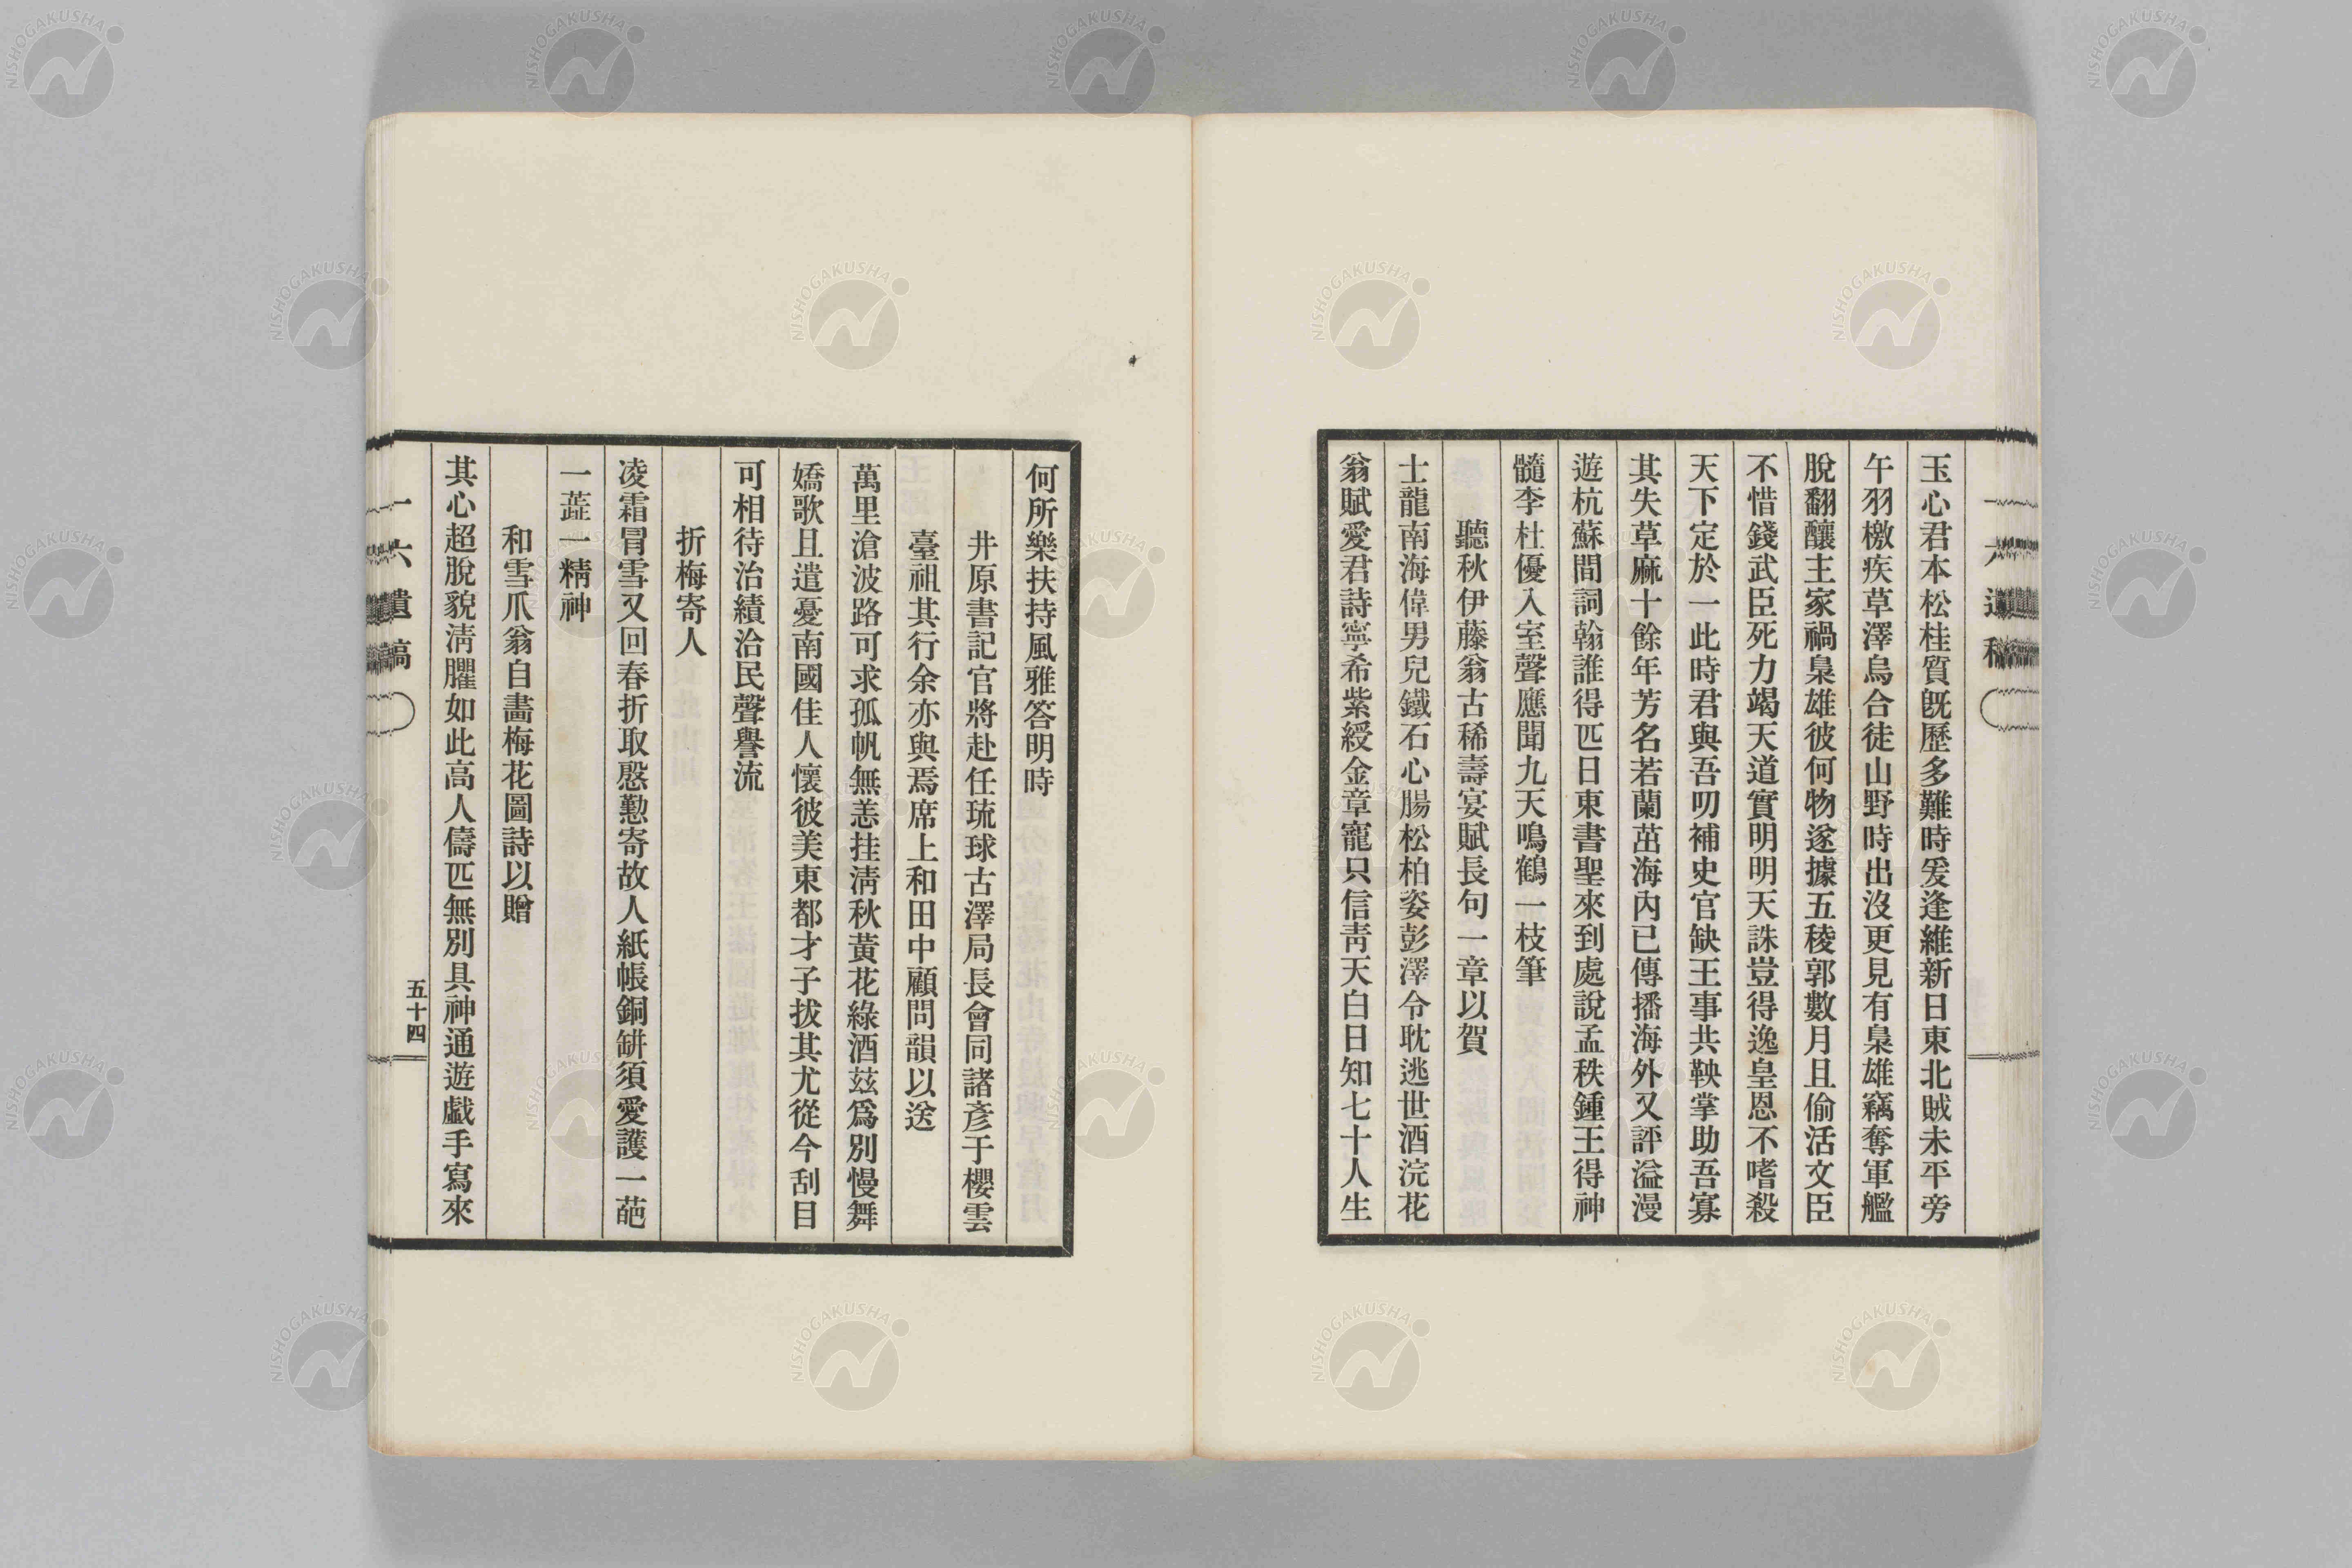 玉心君本松桂質旣歷多難時爰逢維新日東北賊未平旁
午羽檄疾草澤烏合徒山野時出沒更見有梟雄竊奪軍艦
脫翻釀主家禍梟雄彼何物遂據五稜郭數月且偷活文臣
不惜錢武臣死力竭天道實明明天誅豈得逸皇恩不嗜殺
天下定於一此時君與吾叨補史官缺王事共鞅掌助吾寡
其失草麻十餘年芳名若蘭茁海內已傳播海外又評溢漫
遊杭蘇間詞翰誰得匹日東書聖來到處說孟秩鍾王得神
髓李杜優入室聲應聞九天鳴鶴一枝筆
聽秋伊藤翁古稀壽宴賦長句一章以賀
士龍南海偉男兒鐵石心腸松柏姿彭澤令耽逃世酒浣花
翁賦愛君詩寧希紫綬金章寵只信靑天白日知七十人生
何所樂扶持風雅答明時
井原書記官將赴任琉球古澤局長會同諸彥于櫻雲
臺祖其行余亦與焉席上和田中顧問韻以送
萬里滄波路可求孤帆無恙挂淸秋黃花綠酒茲爲別慢舞
嬌歌且遣憂南國佳人懷彼美東都才子拔其尤從今刮目
可相待治績洽民聲譽流
折梅寄人
凌霜冐雪又回春折取慇懃寄故人紙帳銅缾須愛護一葩
一蕋一精神
和雪爪翁自畵梅花圖詩以贈
其心超脫貌淸臞如此高人儔匹無別具神通遊戱手寫來
一六遺稿
五十四
NISHOGAKUSHA